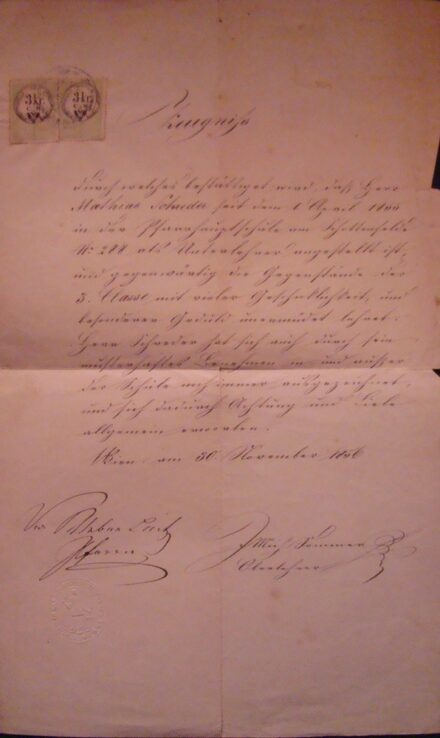 Zeugniß
durch welches bestättiget wird, daß Herr
Mathias Schreder seit dem 1 April
in der Pfarrhauptschule am Schottenfelde
No 288 als Unterlehrer angestellt ist,
und gegenwärtig die Gegenstände der
3. Classe mit vieler Geschicklichkeit, und
besonderer Geduld unermüdet lehret.
Herr Schreder hat sich auch durch sein
musterhaftes Benehmen in und außer
der Schule noch immer ausgezeichnet,
und sich dadurch Achtung und Liebe
allgemein erworben.
Wien am 30 November 1856
Pfarrer
Mich Sommer
Oberlehrer